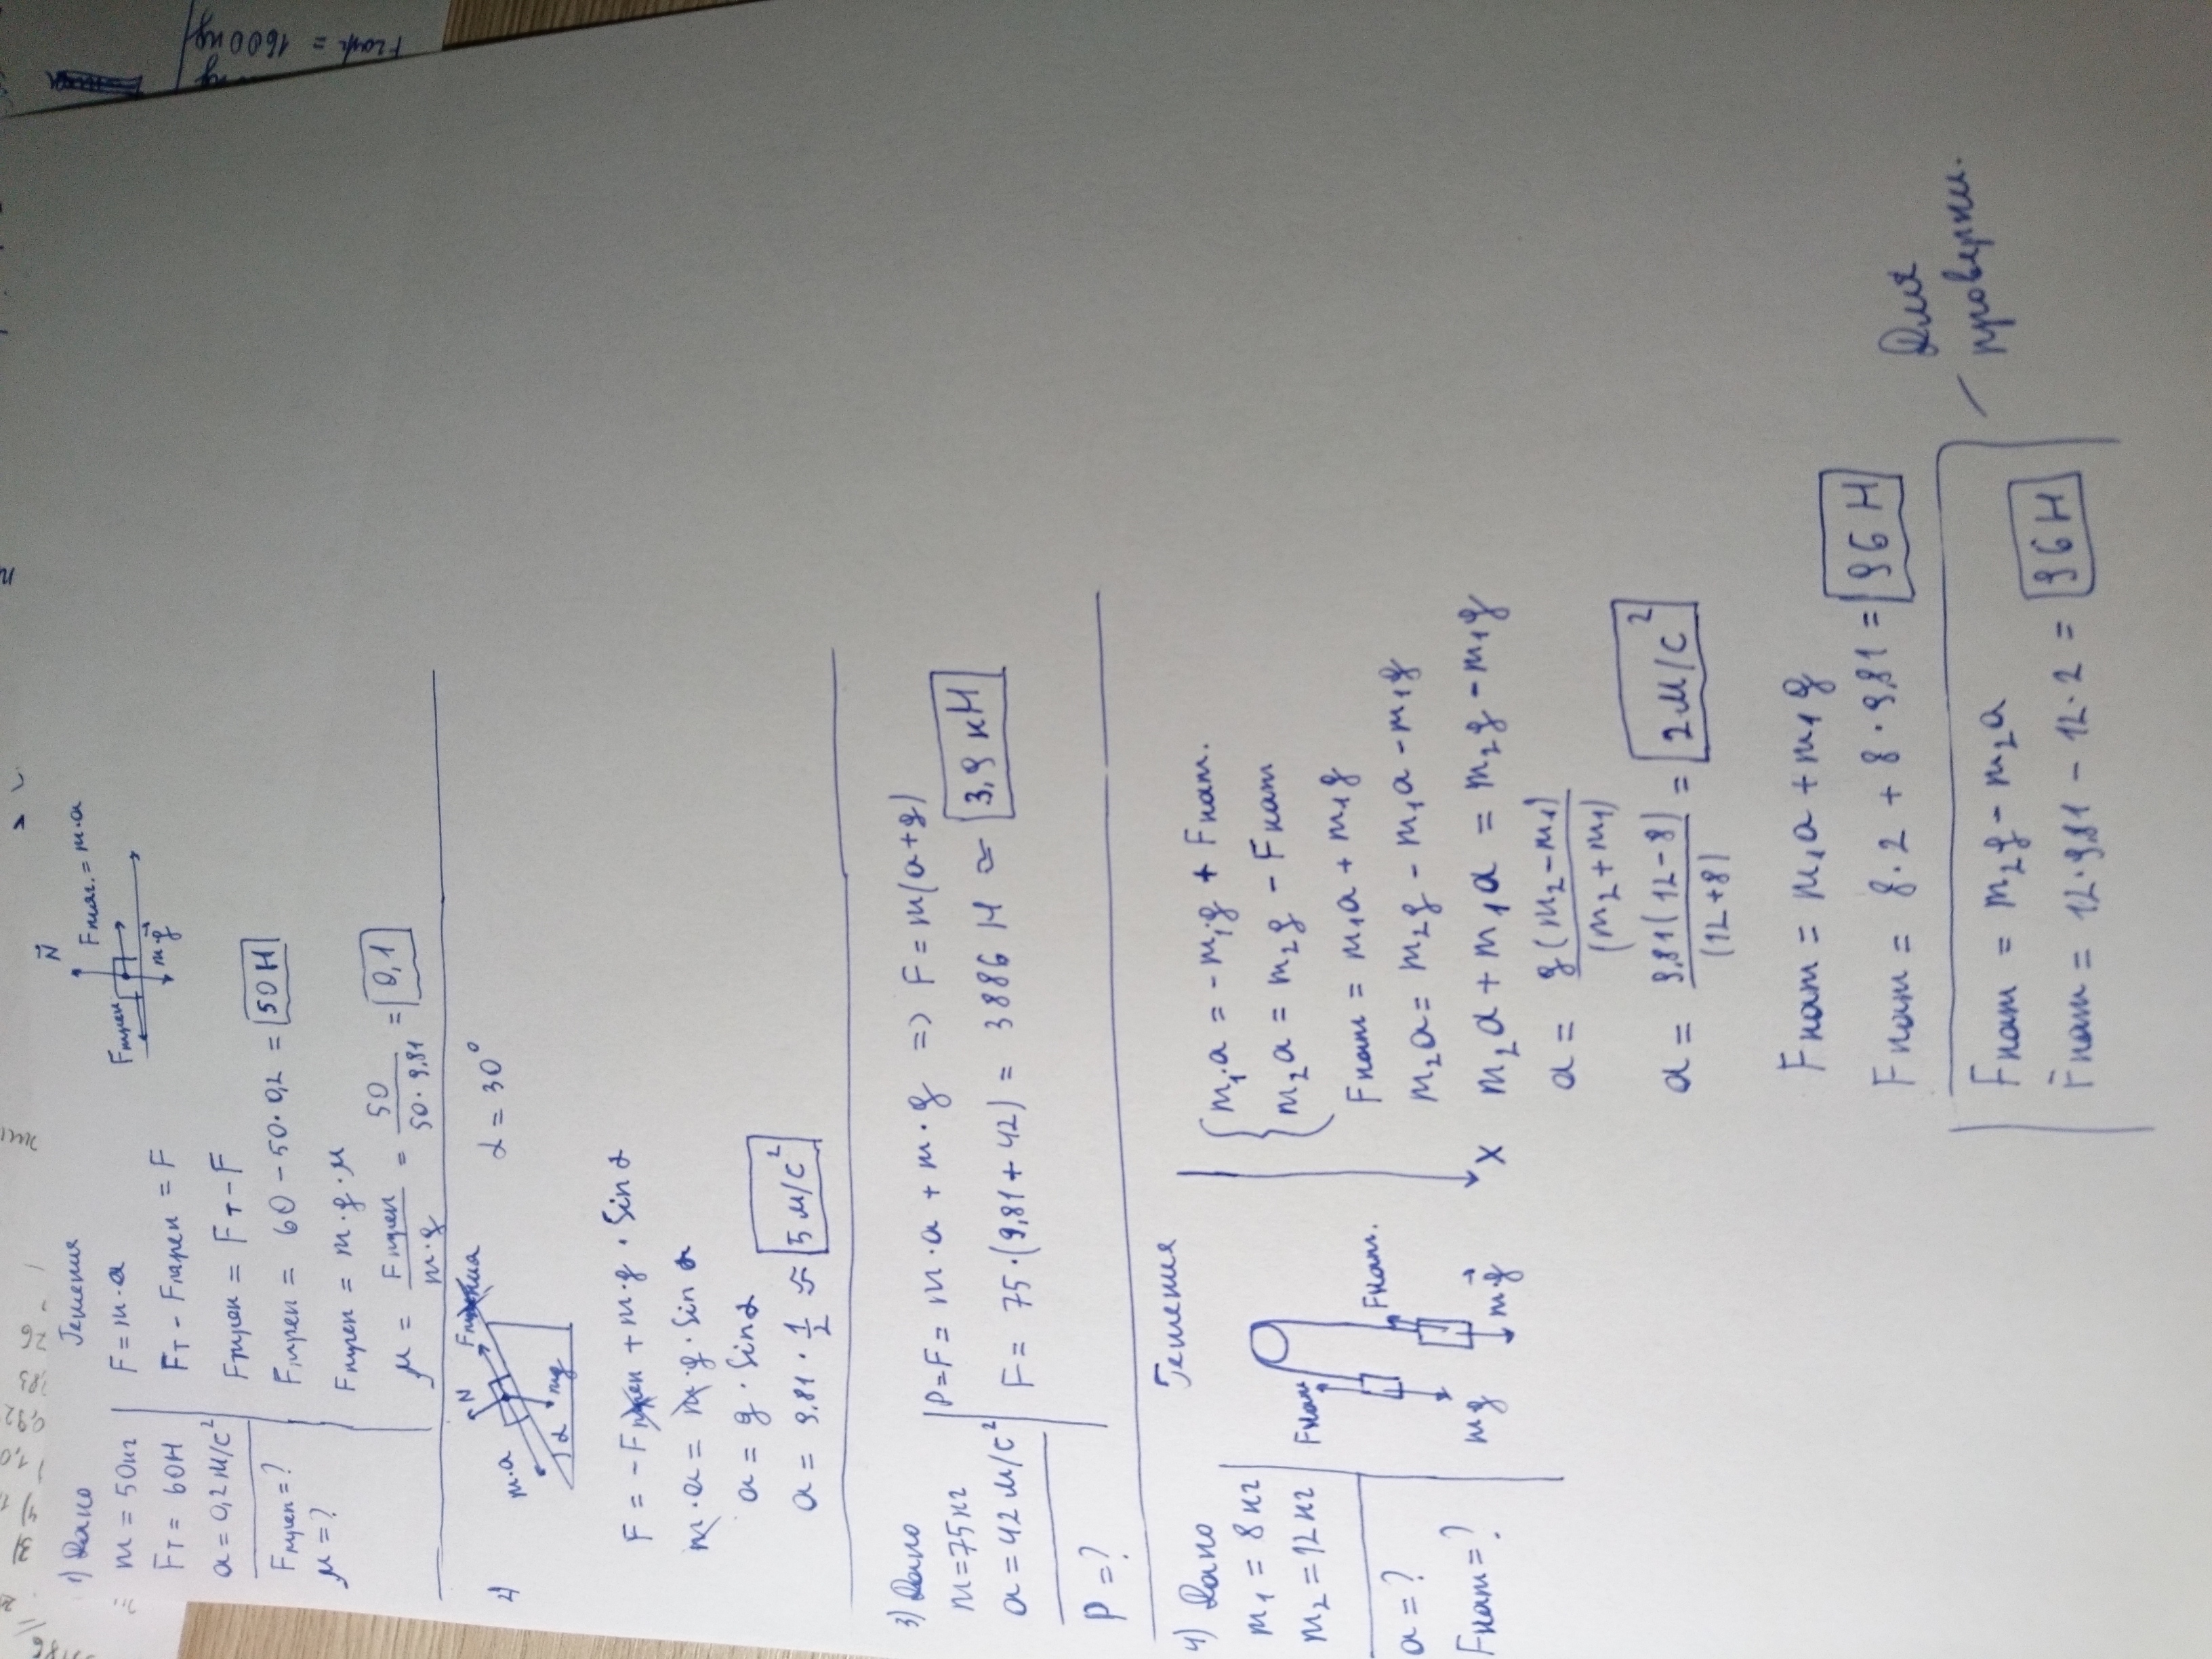 1) Дано
m = 50кг
Fт = 60Н
a = 0,2 м/с²
Fтрен = ?
μ = ?
Решения
F = m·a
Fт - Fтрен = F
Fтрен = Fт - F
Fтрен = 60 - 50·0,2 = 50 Н
Fтрен = m·g·μ
μ = Fтрен / m·g = 50 / 50·9,81 = 0,1
N
Fтрен
m·g
= m·a
2)
α = 30°
m·a
N
mg
α
F = -Fтрен + m·g·Sin α
m·a = m·g·Sin α
a = g·Sin α
a = 9,81·1/2 ≈ 5 м/с²
3) Дано
m = 75кг
a = 42 м/с²
P = ?
P = F = m·a + m·g => F = m(a+g)
F = 75·(9,81 + 42) = 3886 Н ≈ 3,9 кН
4) Дано
m₁ = 8 кг
m₂ = 12 кг
a = ?
Fнат = ?
Решения
Fнат
mg
Fнат.
m·g
x
m₁·a = -m₁g + Fнат.
m₂a = m₂g - Fнат
Fнат = m₁a + m₁g
m₂a = m₂g - m₁a - m₁g
m₂a + m₁a = m₂g - m₁g
a = g(m₂-m₁) / (m₂+m₁)
a = 9,81(12-8) / (12+8) = 2 м/с²
Fнат = m₁a + m₁g
Fнат = 8·2 + 8·9,81 = 96 Н
Fнат = m₂g - m₂a
Fнат = 12·9,81 - 12·2 = 96 Н
Для
проверки.
= 1600